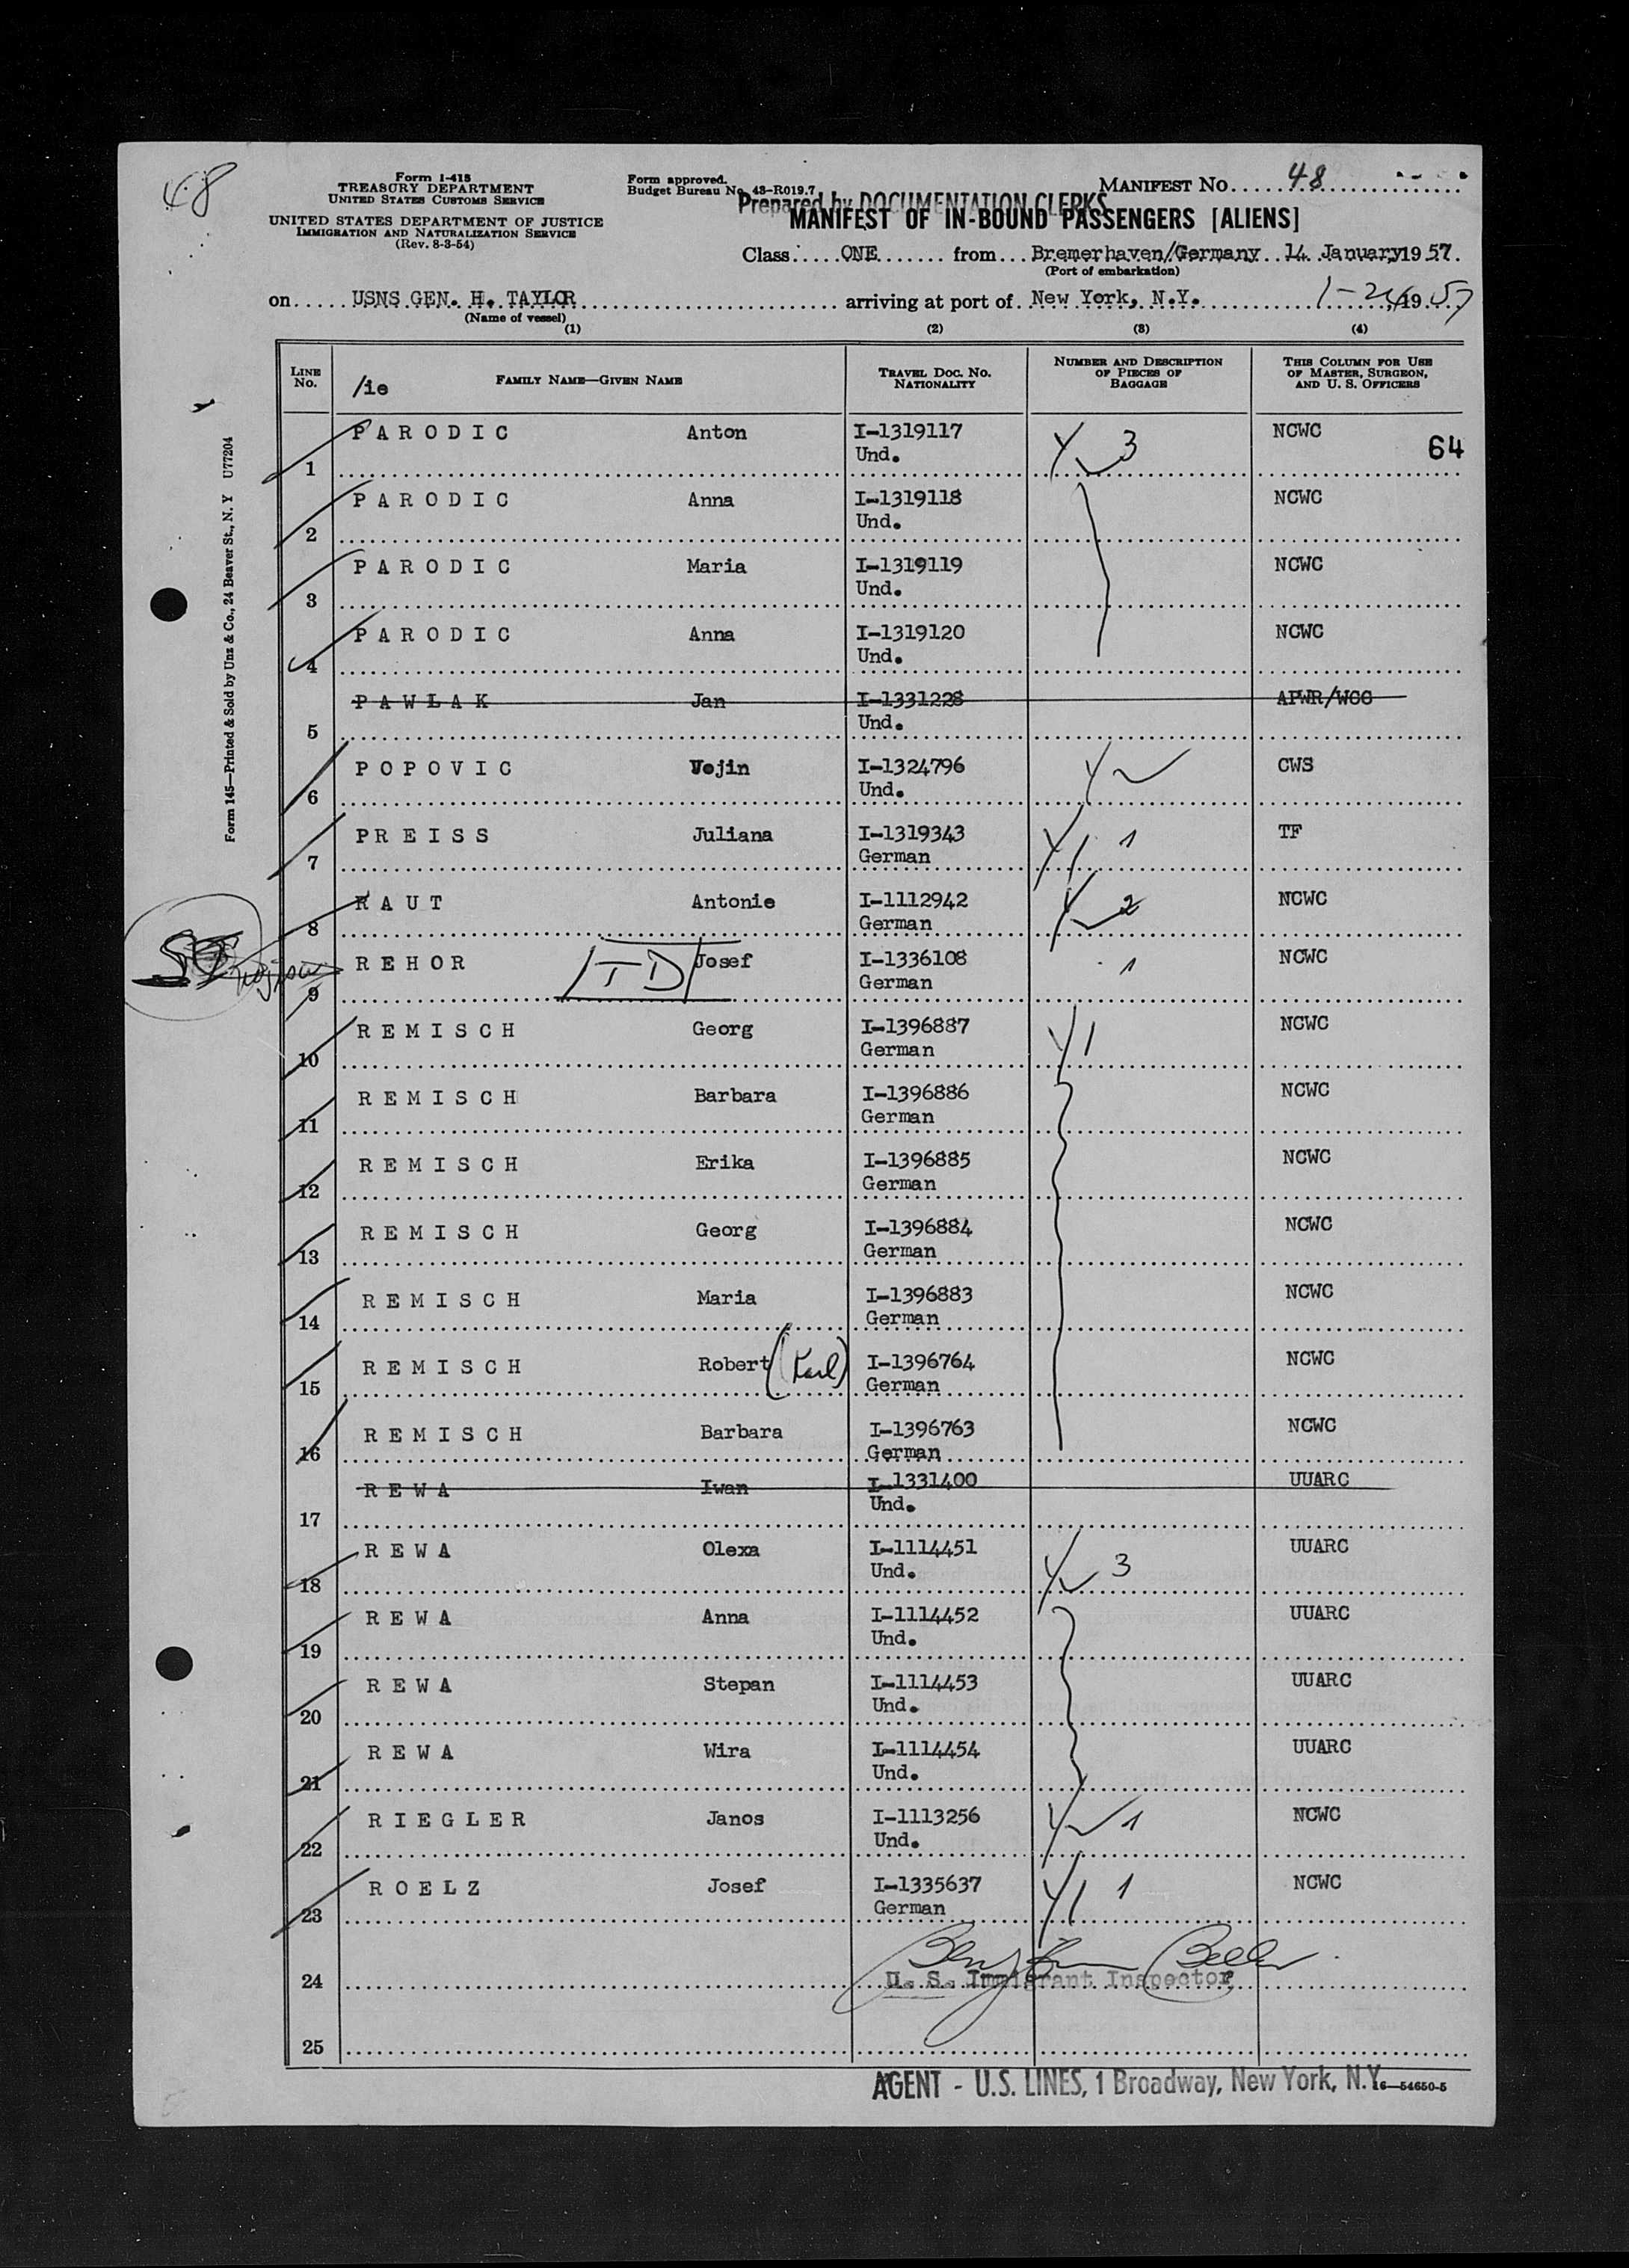 48
Form I-415
TREASURY DEPARTMENT
UNITED STATES CUSTOMS SERVICE
UNITED STATES DEPARTMENT OF JUSTICE
IMMIGRATION AND NATURALIZATION SERVICE
(Rev. 8-3-54)
Form approved.
Budget Bureau No. 43-R019.7
MANIFEST No. 48
Prepared by DOCUMENTATION CLERKS
MANIFEST OF IN-BOUND PASSENGERS [ALIENS]
Class ONE from Bremerhaven/Germany 14 January 1957.
(Port of embarkation)
on USNS GEN. H. TAYLOR arriving at port of New York, N.Y. 1957
(Name of vessel)
(1) (2) (3) (4)
LINE No. /ie FAMILY NAME—GIVEN NAME TRAVEL DOC. NO. NATIONALITY NUMBER AND DESCRIPTION OF PIECES OF BAGGAGE THIS COLUMN FOR USE OF MASTER, SURGEON, AND U. S. OFFICERS
1 PARODIC Anton I-1319117 Und. 3 NCWC 64
2 PARODIC Anna I-1319118 Und. NCWC
3 PARODIC Maria I-1319119 Und. NCWC
4 PARODIC Anna I-1319120 Und. NCWC
5 PAWLAK Jan I-1331228 Und. APWR/WCC
6 POPOVIC Vojin I-1324796 Und. CWS
7 PREISS Juliana I-1319343 German 1 TF
8 RAUT Antonie I-1112942 German 2 NCWC
9 REHOR TD Josef I-1336108 German 1 NCWC
10 REMISCH Georg I-1396887 German 1 NCWC
11 REMISCH Barbara I-1396886 German NCWC
12 REMISCH Erika I-1396885 German NCWC
13 REMISCH Georg I-1396884 German NCWC
14 REMISCH Maria I-1396883 German NCWC
15 REMISCH Robert (Karl) I-1396764 German NCWC
16 REMISCH Barbara I-1396763 German NCWC
17 REWA Iwan I-1331400 Und. UUARC
18 REWA Olexa I-1114451 Und. 3 UUARC
19 REWA Anna I-1114452 Und. UUARC
20 REWA Stepan I-1114453 Und. UUARC
21 REWA Wira I-1114454 Und. UUARC
22 RIEGLER Janos I-1113256 Und. 1 NCWC
23 ROELZ Josef I-1335637 German 1 NCWC
24 U. S. Immigrant Inspector
25
AGENT - U.S. LINES, 1 Broadway, New York, N.Y.
16—54650-5
Form 145—Printed & Sold by Unz & Co., 24 Beaver St., N. Y U77204